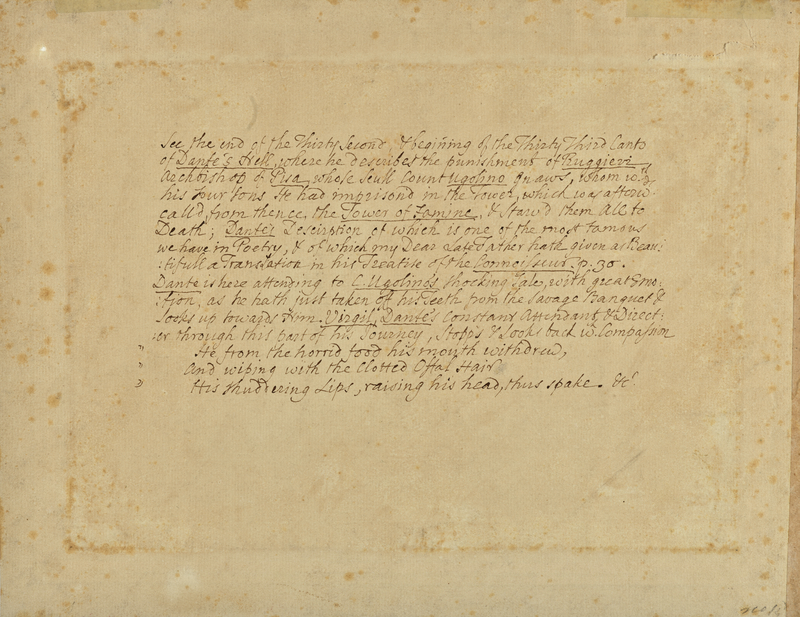 See the end of the Thirty Second, & begiñing of the Thirty Third Canto
of Dante's Hell, where he describes the punishment of Ruggieri,
Archbishop of Pisa, whose Scull Count Ugolino gnaws, whom with
his four Sons He had imprisond in the Tower, which was afterw:
call'd, from thence, the Tower of Famine, & starv'd them All to
Death; Dante's Description of which is one of the most famous
we have in Poetry, & of which my Dear Late Father hath given a Beau:
:tifull a Translation in his Treatise of the Connoisseur, p. 30.
Dante is here attending to C. Ugolino's shocking Tale, with great Emo:
:tion, as he hath just taken off his Teeth from the Savage Banquet &
Looks up towards Him. Virgil, Dante's Constant Attendant, & Direct:
:or through this part of his Journey, Stopps & Looks back w. Compassion
" He from the horrid food his mouth withdrew,
" And wiping with the Clotted Offal Hair
" His shuddering Lips, raising his head, thus spake. &c.